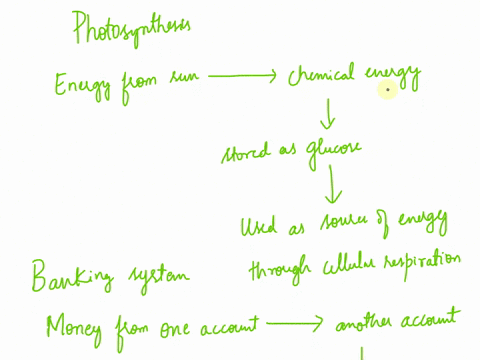 Photosynthesis
Energy from sun → chemical energy
stored as glucose
Used as source of energy
through cellular respiration
Banking system
Money from one account → another account